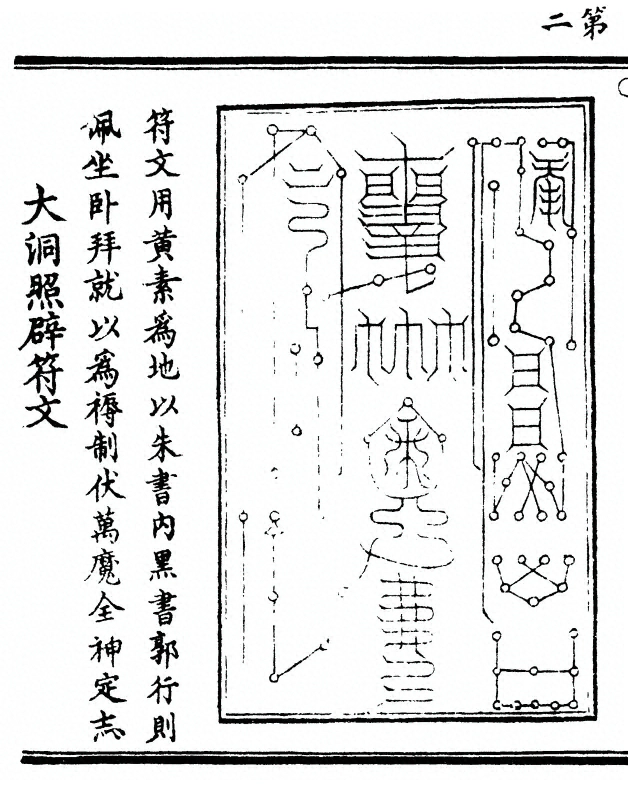 第二
符文用黄素為地以朱書內黑書郭行則
佩坐卧拜就以為褥制伏萬魔全神定志
大洞照辟符文